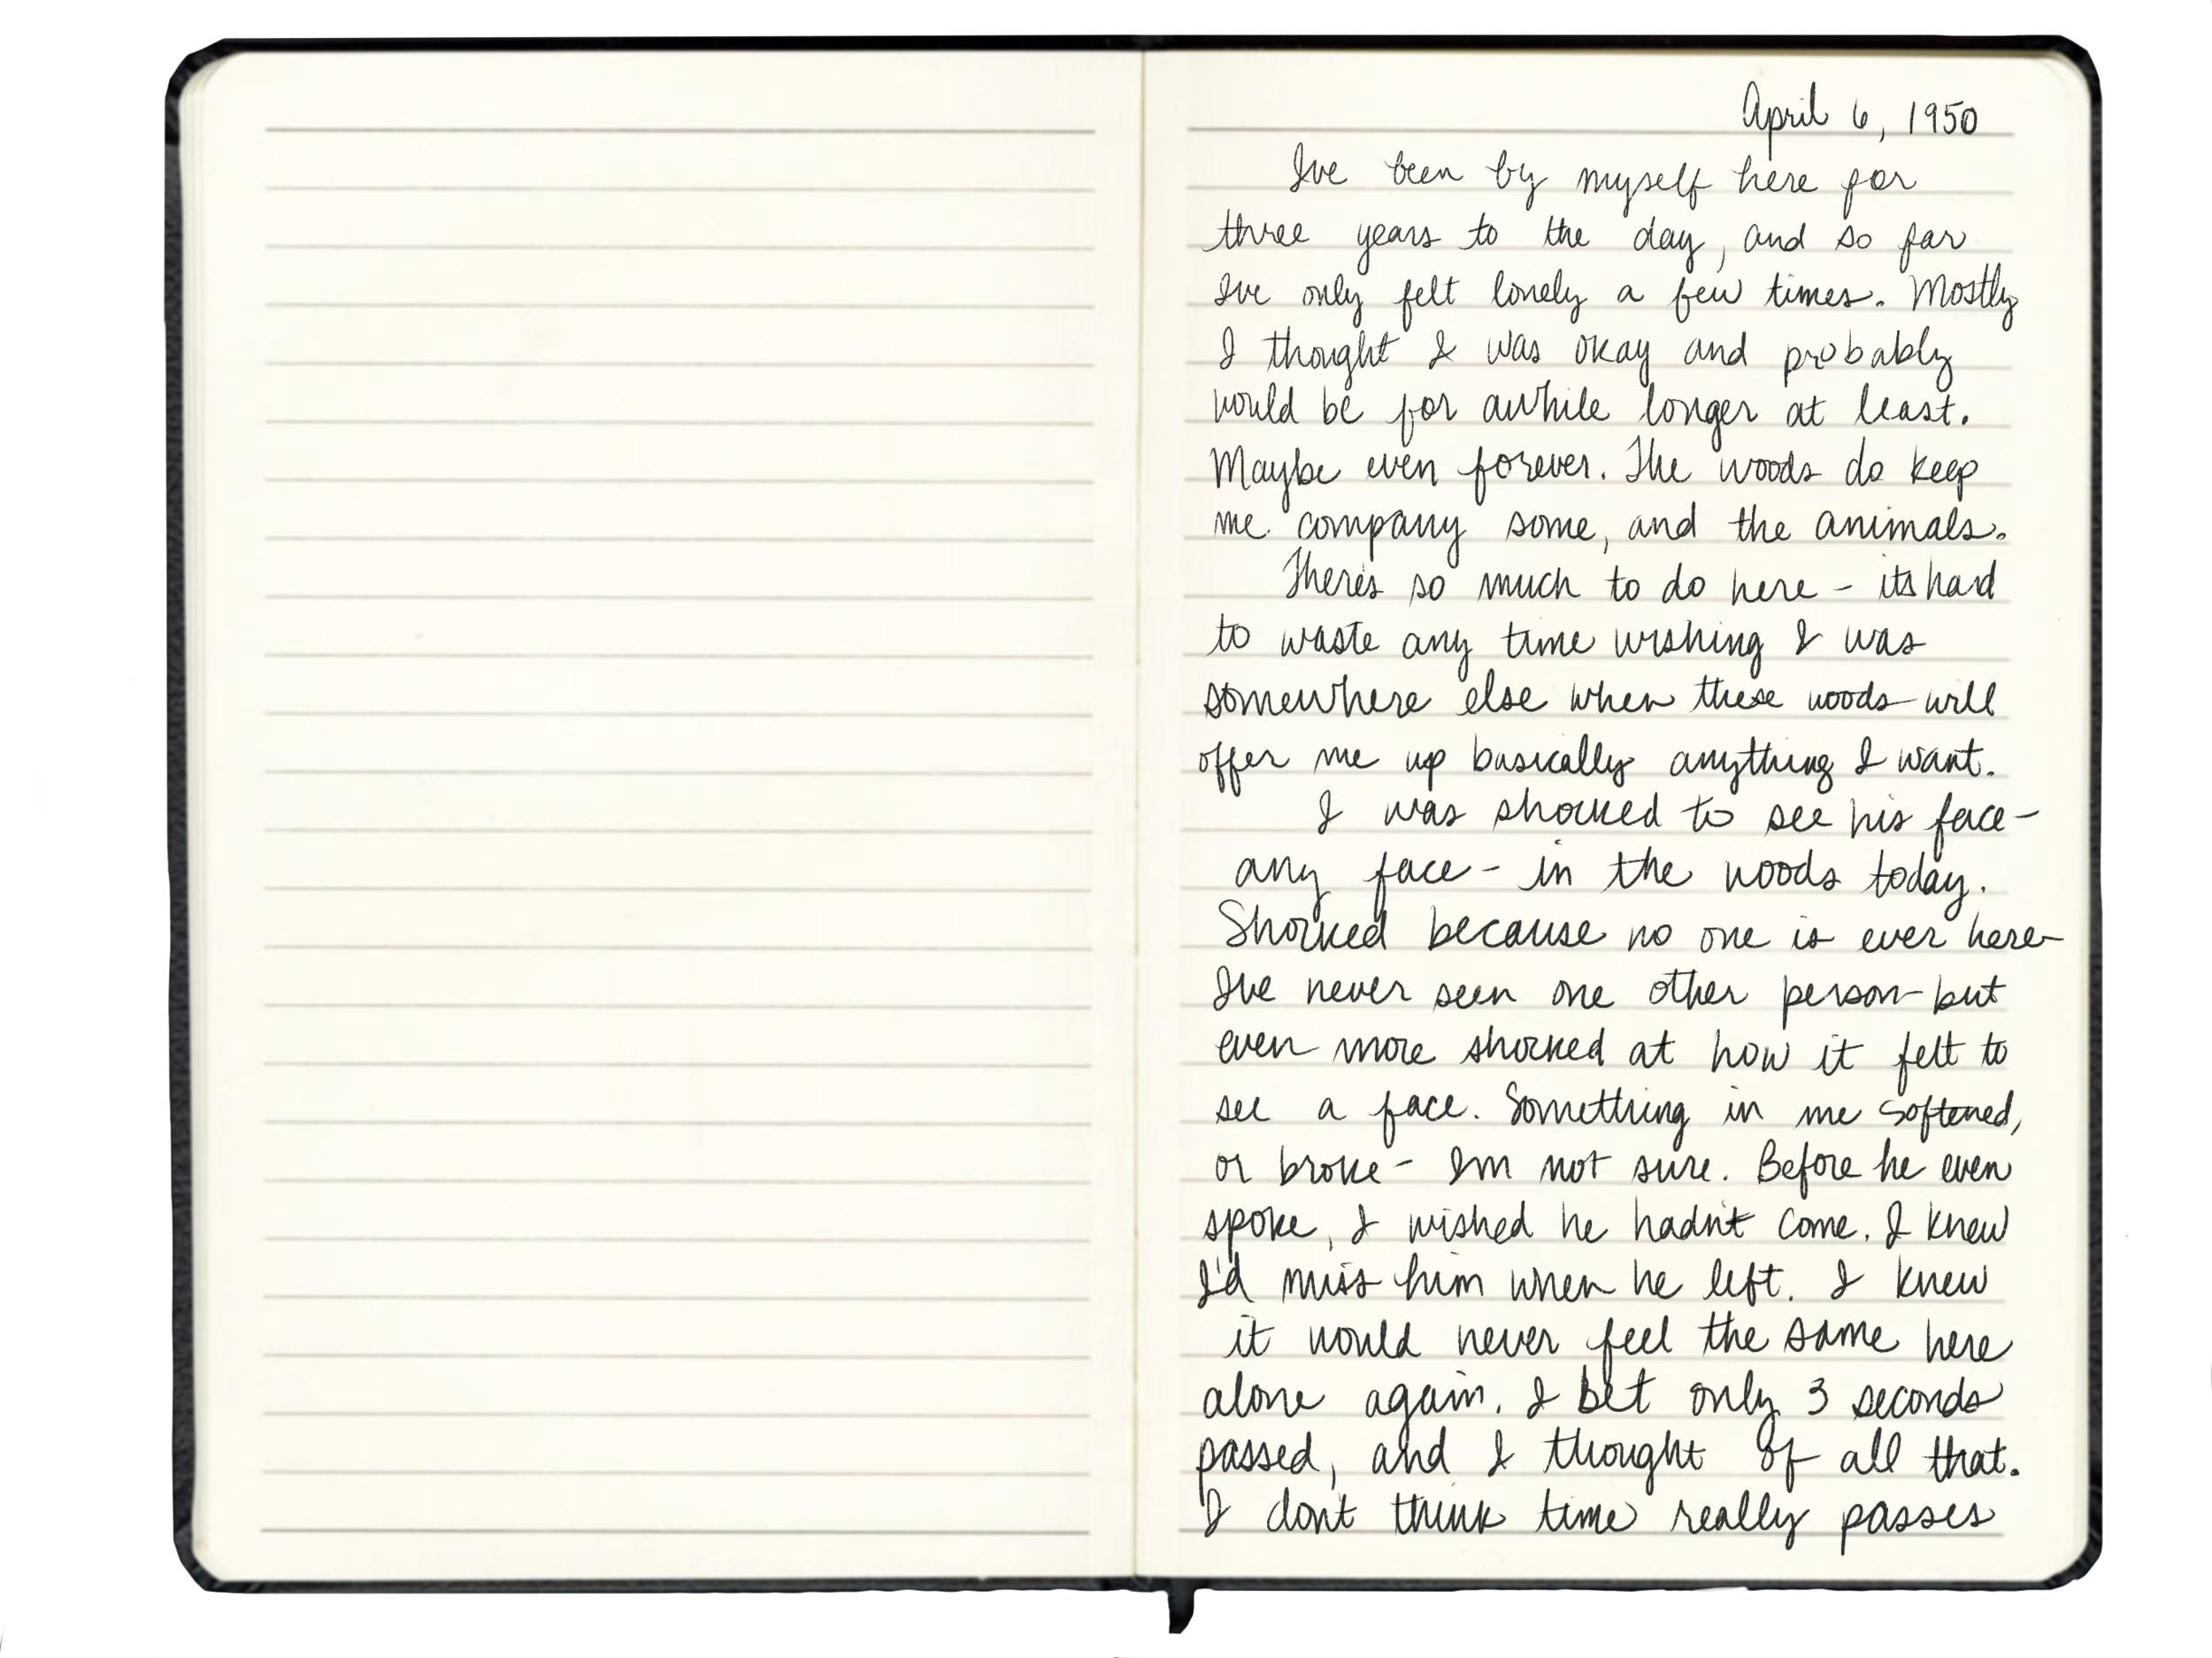 April 6, 1950
Ive been by myself here for
three years to the day, and so far
Ive only felt lonely a few times. Mostly
I thought I was okay and probably
would be for awhile longer at least.
Maybe even forever. The woods do keep
me company some, and the animals.
There's so much to do here - its hard
to waste any time wishing I was
somewhere else when these woods will
offer me up basically anything I want.
I was shocked to see his face -
any face - in the woods today.
Shocked because no one is ever here -
Ive never seen one other person - but
even more shocked at how it felt to
see a face. Something in me softened,
or broke - Im not sure. Before he even
spoke, I wished he hadn't come. I knew
I'd miss him when he left. I knew
it would never feel the same here
alone again. I bet only 3 seconds
passed, and I thought of all that.
I don't think time really passes